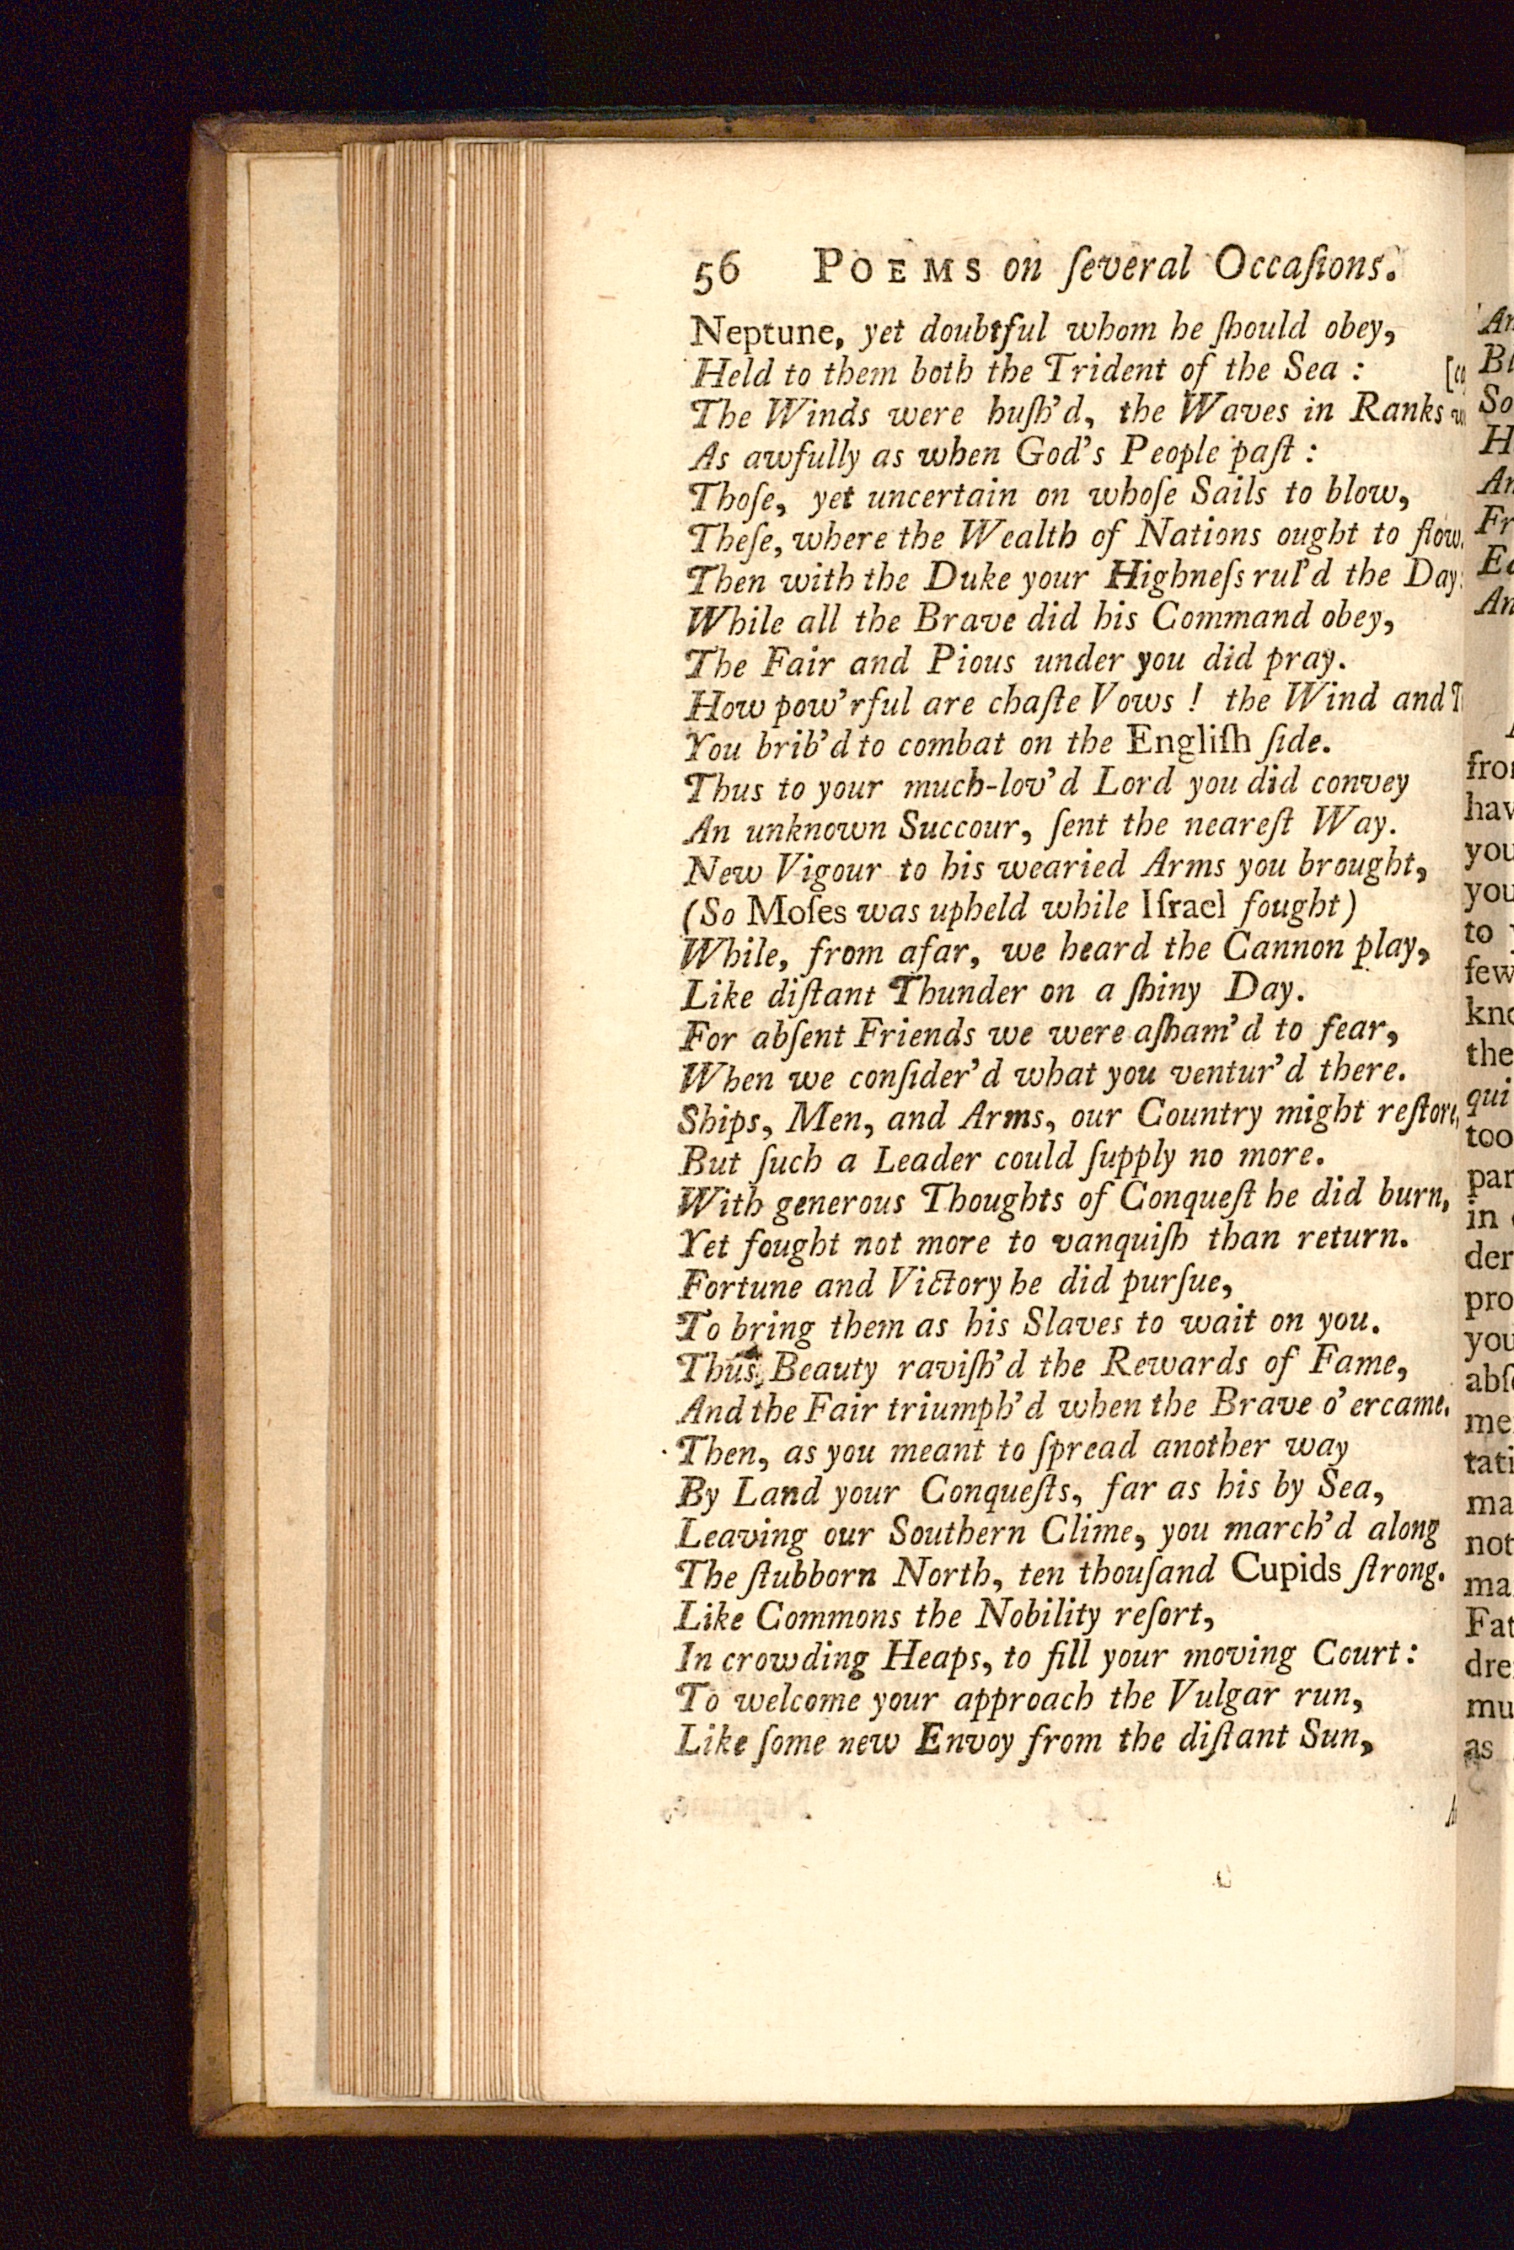 56 POEMS on ſeveral Occaſions.
Neptune, yet doubtful whom he ſhould obey,
Held to them both the Trident of the Sea :
The Winds were huſh'd, the Waves in Ranks
As awfully as when God's People paſt :
Thoſe, yet uncertain on whoſe Sails to blow,
Theſe, where the Wealth of Nations ought to flow.
Then with the Duke your Highneſs rul'd the Day:
While all the Brave did his Command obey,
The Fair and Pious under you did pray.
How pow'rful are chaſte Vows ! the Wind and
You brib'd to combat on the Engliſh ſide.
Thus to your much-lov'd Lord you did convey
An unknown Succour, ſent the neareſt Way.
New Vigour to his wearied Arms you brought,
(So Moſes was upheld while Iſrael fought)
While, from afar, we heard the Cannon play,
Like diſtant Thunder on a ſhiny Day.
For abſent Friends we were aſham'd to fear,
When we conſider'd what you ventur'd there.
Ships, Men, and Arms, our Country might reſtore,
But ſuch a Leader could ſupply no more.
With generous Thoughts of Conqueſt he did burn,
Yet fought not more to vanquiſh than return.
Fortune and Victory he did purſue,
To bring them as his Slaves to wait on you.
Thus Beauty raviſh'd the Rewards of Fame,
And the Fair triumph'd when the Brave o'ercame.
Then, as you meant to ſpread another way
By Land your Conqueſts, far as his by Sea,
Leaving our Southern Clime, you march'd along
The ſtubborn North, ten thouſand Cupids ſtrong.
Like Commons the Nobility reſort,
In crowding Heaps, to fill your moving Court:
To welcome your approach the Vulgar run,
Like ſome new Envoy from the diſtant Sun,